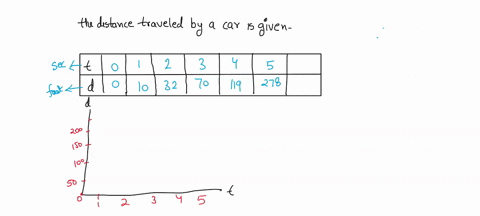 the distance traveled by a car is given-
sec ← t 0 1 2 3 4 5
feet ← d 0 10 32 70 119 278
d
200
150
100
50
0 1 2 3 4 5 t